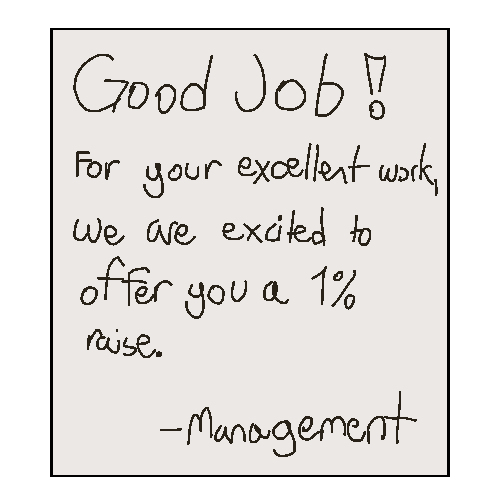 Good Job!
For your excellent work,
we are excited to
offer you a 1%
raise.
-Management